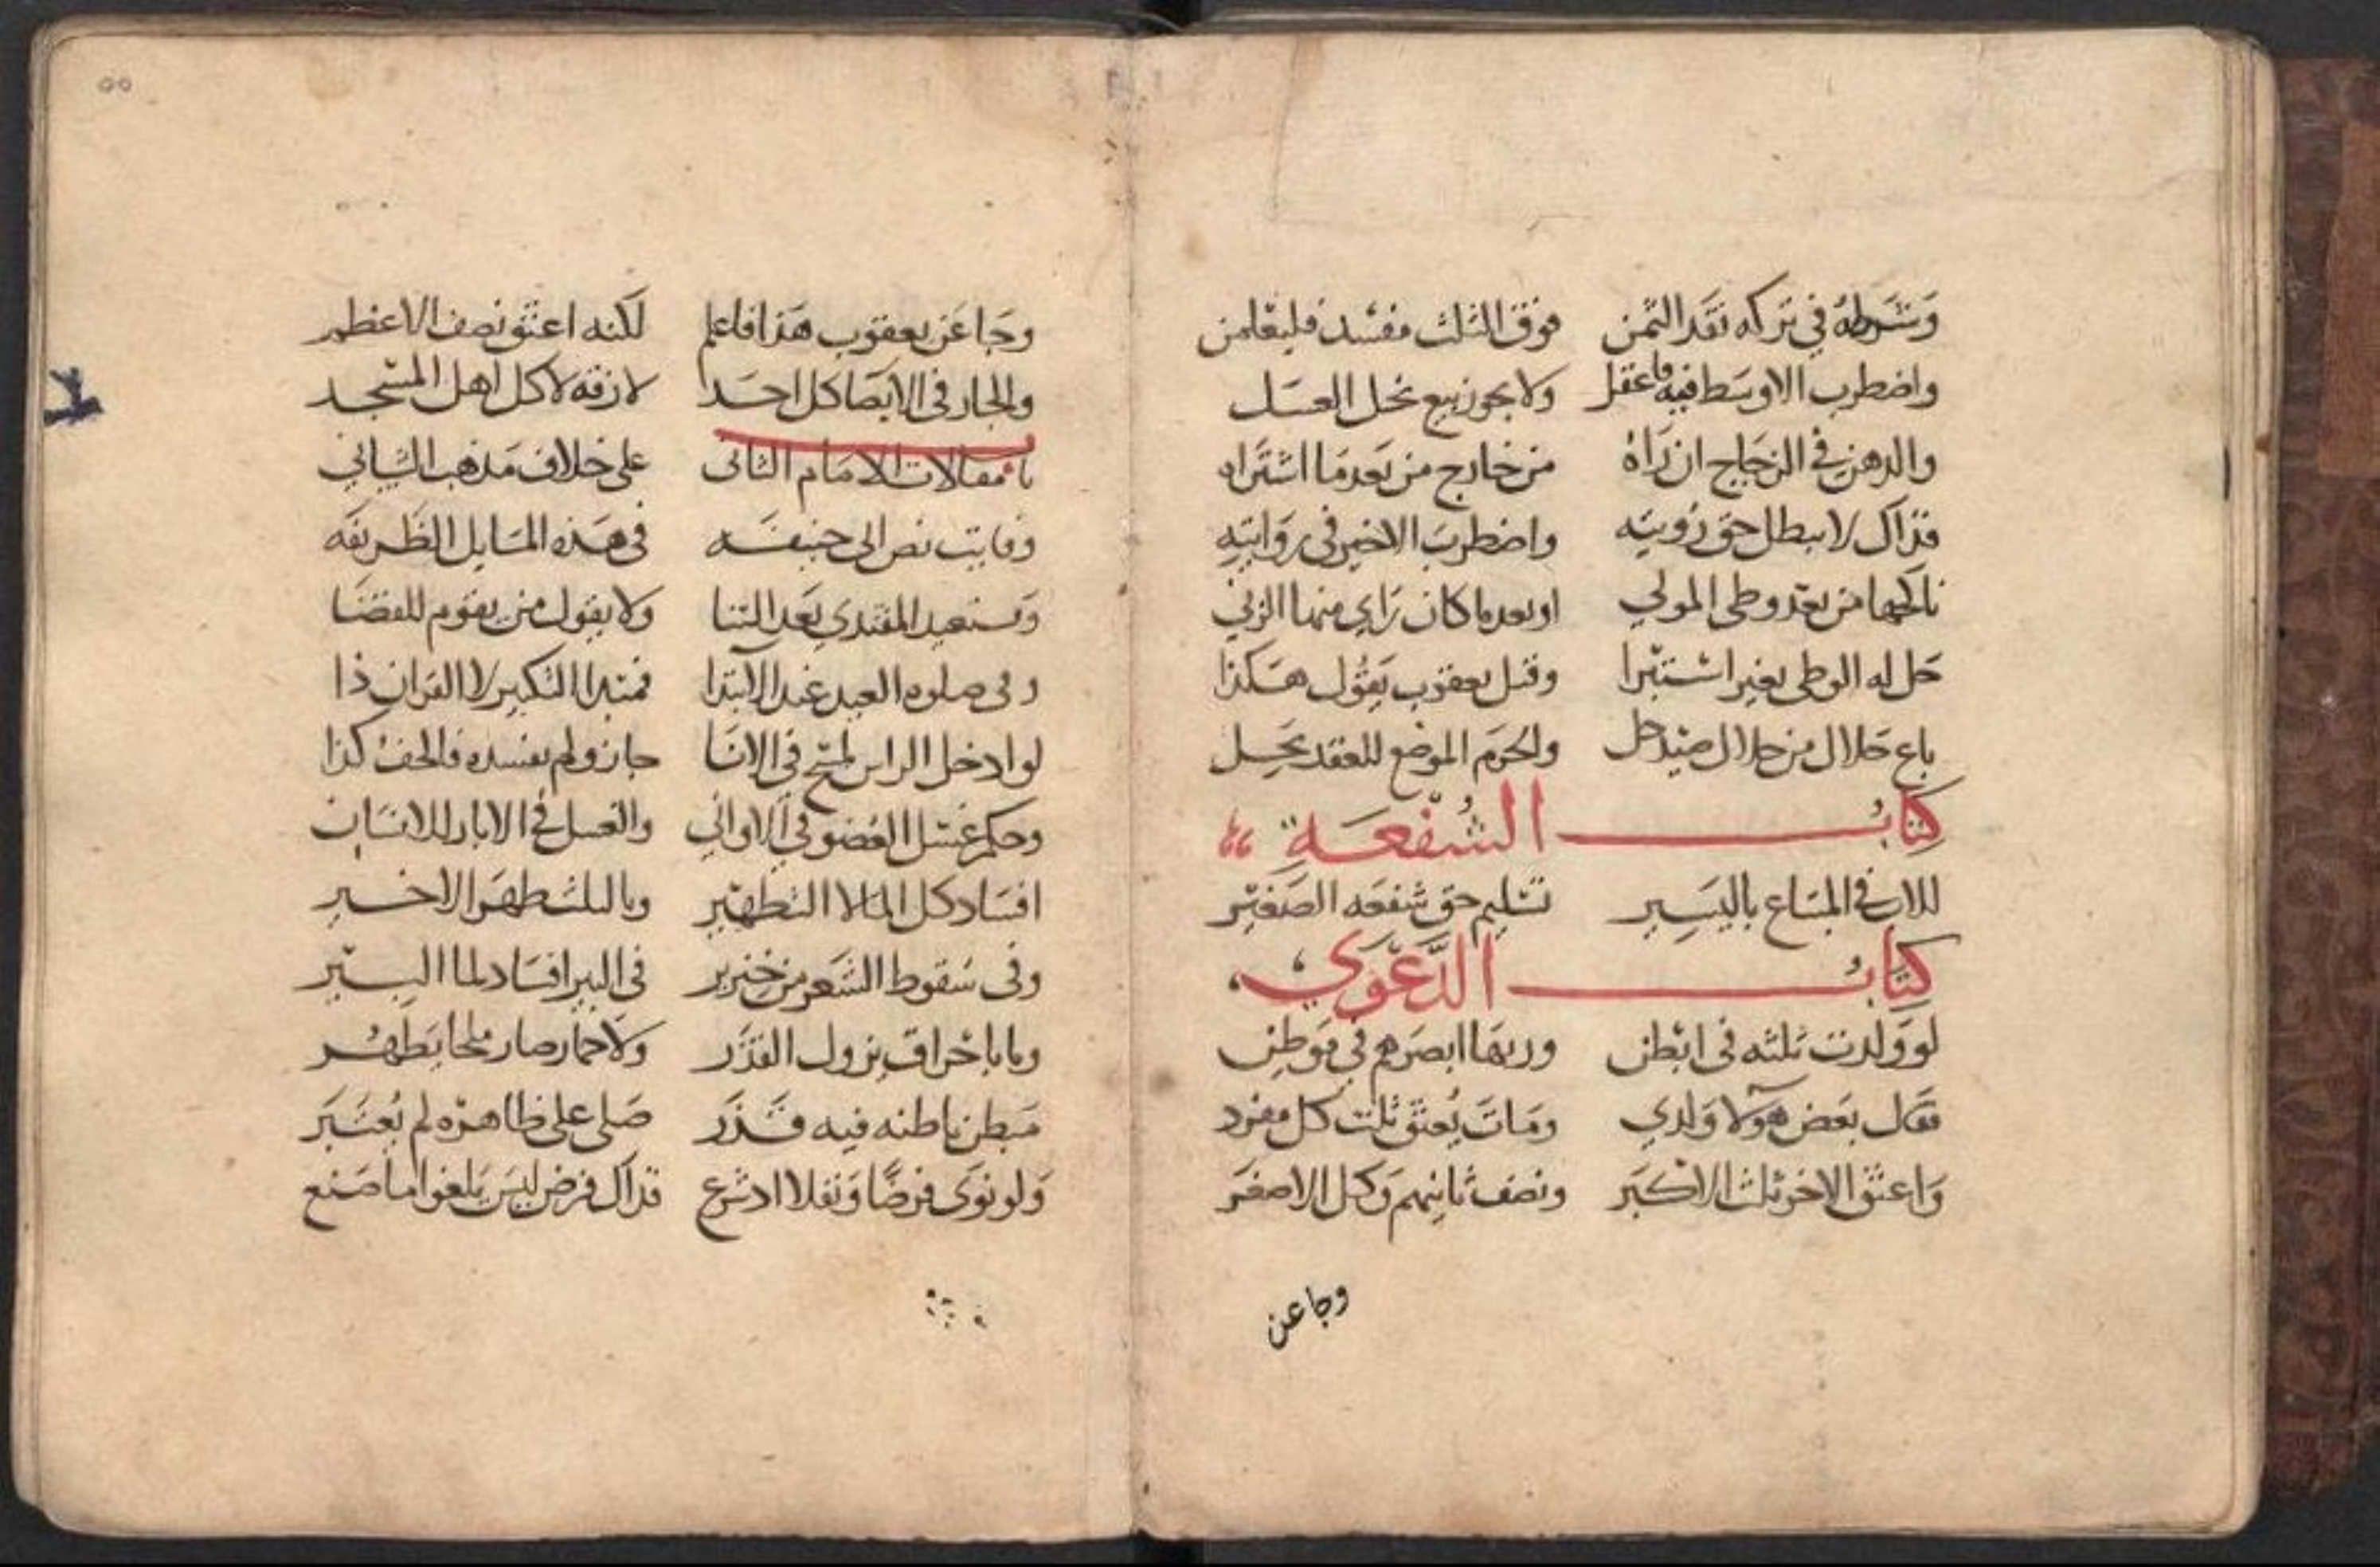 وَشَرطهُ في تركه نقد الثمن فوق الثلث مفسد فليعلمن
واضطرب الاوسَط فيه فاعقل ولا يجوز بيع نحل العسَل
والدهن في الزجَاج ان رَاهُ من خارج من بَعد مَا اشتراه
فذاك لا يبطل حق رُويته واضطربَ الاخير في روَايتِه
ناكحها من بعد وطى المولي او بعد ما كان رَاي منها الزني
حَل له الوطى بغير اسْتبْرا وقبل يعقوب يَقُول هَكذا
باع حَلال من حلال صيد حل والحرَم الموضع للعقد يحِل
كتابُ الشُفعَة
للاب في المشَاع باليَسِير تسْليم حق شفعَه الصَغيْر
كتابُ الدَّعْوَي
لو وَلدت ثلثه في ابْطن وربهَا ابصرَهم في مَوطِن
فقال بعَض هَولا وَلدي ومَاتَ يُعتق ثلث كل مفرد
وَاعتق الاخر ثلث الاكبَر ونصف ثانيهم وَكل الاصغَر
وجا عن
٥٥
وجَا عَن يعقوب هَذا فاعلم لكنه اعتق نصف الاعظم
والجار في الايصَا كل احَد لازقه لا كل اهل المسْجد
باب مقالات الامَام الثاني على خلاف مَذهب الشيباني
وفايت نص ابى حنيفَه في هَذه المسَايل الظَريفَه
وَيستعيد المقتدي بَعد الثنا ولا يقول من يقوم للقضَا
وفي صلوه العيد عند الابتدا فيبتدا التكبير لا القران ذا
لو ادخل الراس لمسْح في الانَا جاز ولم يفسده فالخف كذا
وحكم غسْل العُضو في الاواني والغسل في الابار للانسَان
افسَاد كل الما لا التطهير وبالثلث طهَر الاخير
وفي سَقوط الشَعر من خنزير في البير افسَاد لما البير
وبا باحراق يزول القذَر ولا حمار صار ملحا يَطهُر
مَبطن باطنه فيه قَذَر صَلى على ظاهره لم يُعتَبَر
وَلو نوَى فرضًا وَنفلا اد شرع فذاك فرض ليسَ يَلغوا ما صَنع